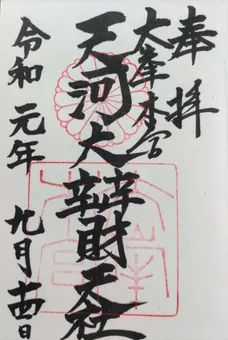 奉拝
大峯本宮
天河大辨財天社
令和元年 九月十四日